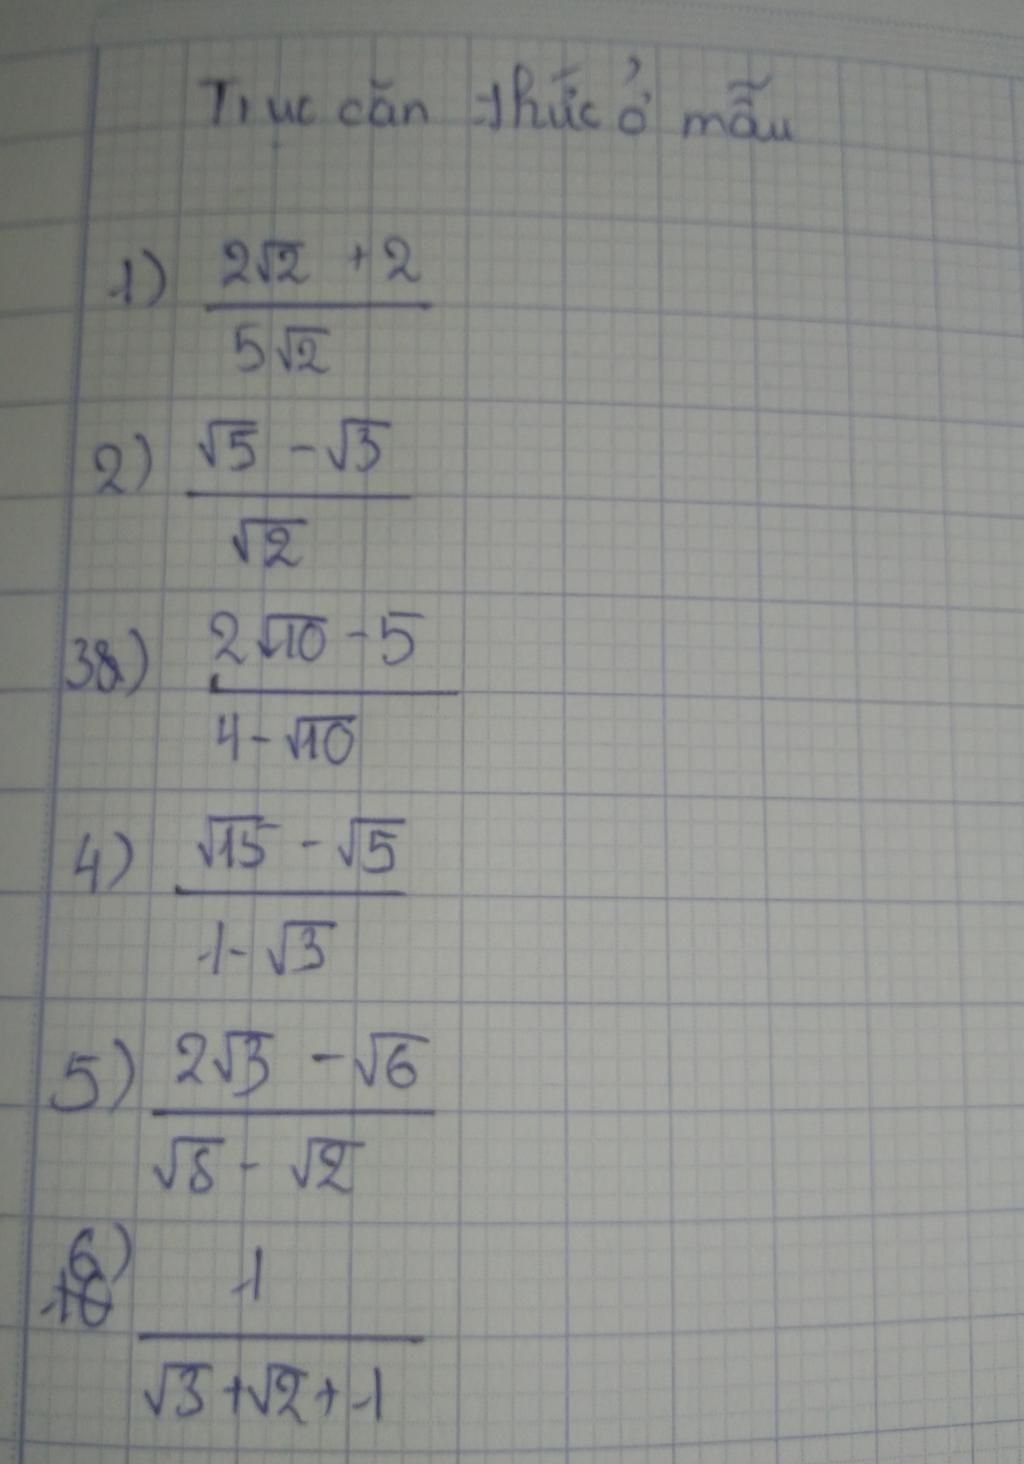 Trục căn thức ở mẫu
1) (2√2 + 2) / (5√2)
2) (√5 - √3) / √2
3) (2√10 - 5) / (4 - √10)
4) (√15 - √5) / (1 - √3)
5) (2√3 - √6) / (√8 - √2)
6) 1 / (√3 + √2 + 1)